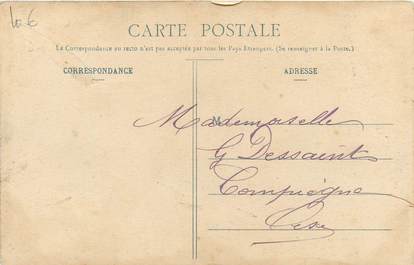 10 €
CARTE POSTALE
Le Correspondance au recto n'est pas acceptée par tous les Pays Etrangers. (Se renseigner à la Poste.)
CORRESPONDANCE
ADRESSE
Mademoiselle
G Dessaint
Compiègne
Oise